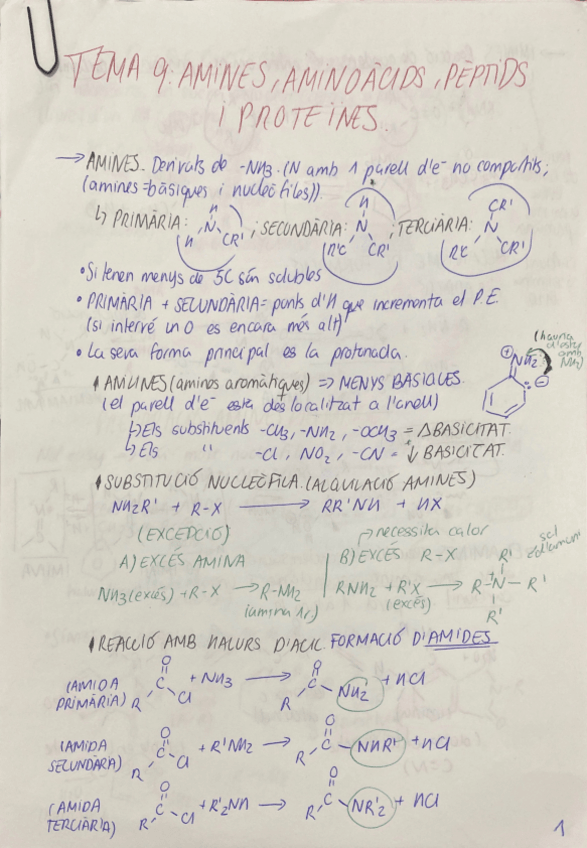 TEMA 9: AMINES, AMINOÀCIDS, PÈPTIDS
I PROTEÏNES.
→ AMINES. Derivats de -NH3. (N amb 1 parell d'e- no compartits;
(amines=bàsiques i nucleòfiles)).
↳ PRIMÀRIA: H N H CR' ; SECUNDÀRIA: H N R'C CR' ; TERCIÀRIA: CR' N R'C CR'
• Si tenen menys de 5C són solubles
• PRIMÀRIA + SECUNDÀRIA = ponts d'H que incrementa el P.E.
(si intervé un O és encara més alt)
• La seva forma principal és la protonada.
(hauria d'estar amb NH2)
ANILINES (amines aromàtiques) => MENYS BÀSIQUES.
(el parell d'e- està deslocalitzat a l'anell)
⊕ NH2 ⊖
↳ Els substituents -CH3, -NH2, -OCH3 = Δ BASICITAT.
↳ Els " -Cl, NO2, -CN = ↓ BASICITAT.
SUBSTITUCIÓ NUCLEÒFILA. (ALQUILACIÓ AMINES)
NH2R' + R-X → RR'NH + HX
(EXCEPCIÓ)
necessita calor
A) EXCÉS AMINA
B) EXCÉS R-X
NH3 (excés) + R-X → R-NH2
(amina 1r)
RNH2 + R'X → R-N+-R' R' R'
(excés)
sal
REACCIÓ AMB HALURS D'ÀCIL. FORMACIÓ D'AMIDES
(AMIDA
PRIMÀRIA)
O C R Cl + NH3 → O C R NH2 + HCl
(AMIDA
SECUNDÀRA)
O C R Cl + R'NH2 → O C R NHR' + HCl
(AMIDA
TERCIÀRIA)
O C R' Cl + R'2NH → O C R NR'2 + HCl
1